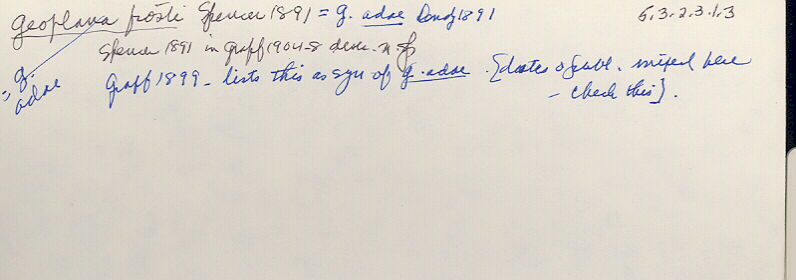 Geoplana frosti Spencer 1891 = G. adae Dendy 1891 5.3.2.3.1.3
Spencer 1891 in Graff 1904-8 descr. n sp
= G. adae
Graff 1899 - lists this as syn of G. adae. [dates of publ. mixed here
- check this].